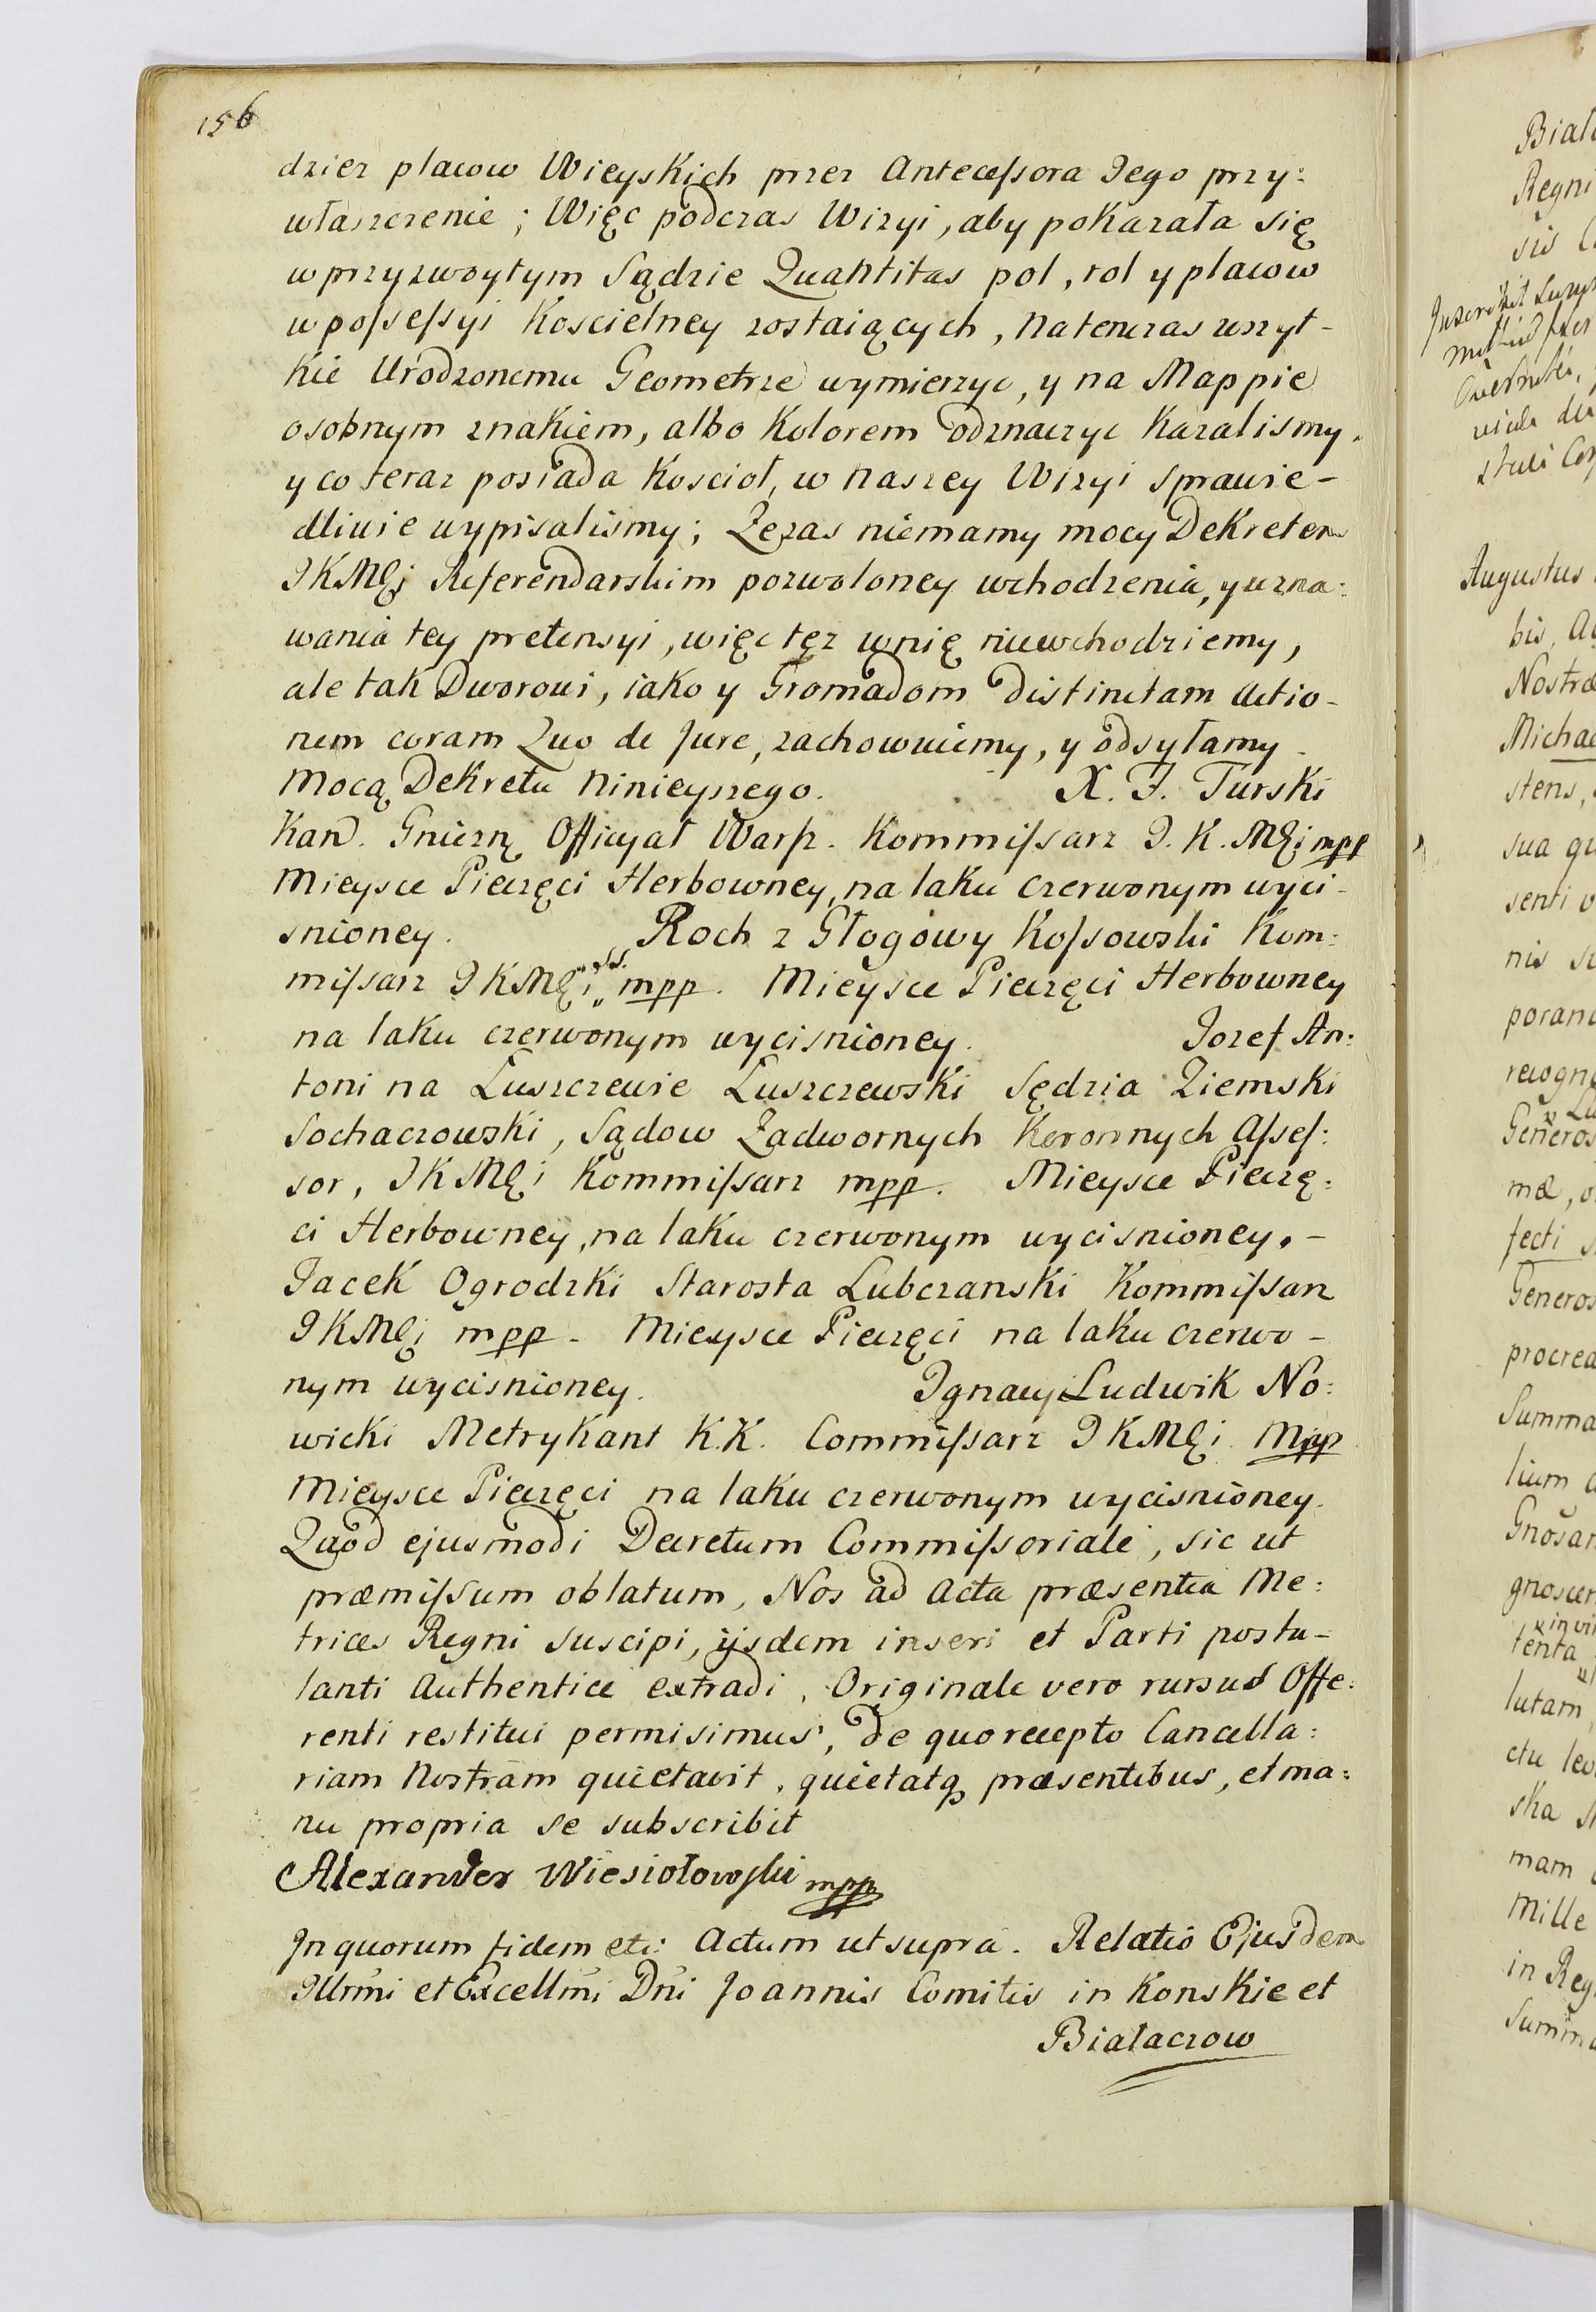 156
dziez placow Wieyskich przez Antecessora Jego przy:
właszczenie; Więc podczas Wizyi, aby pokazała się
w przyzwoytym Sądzie Quantitas pol, rol y placow
w possessyi Koscielney zostaiących, natenczas wszyt-
kie Urodzonemu Geometrze wymierzyc, y na Mappie
osobnym znakiem, albo Kolorem odznaczyc kazalismy,
y co teraz posiada Koscioł, w naszey Wizyi sprawie-
dliwie wypisalismy; Zezas niemamy mocy Dekretem
JKMĘi Referendarskim pozwoloney wchodzenia, y uzna:
wania tey pretensyi, więc tęz w nię niewchodziemy,
ale tak Dworowi, iako y Gromadom distinctam actio-
nem coram Quo de Jure, zachowuiemy, y odsyłamy
mocą Dekretu ninieyszego. X. F. Turski
Kan. Gniezn. Officyał Warsz. Kommissarz J. K. MĘi mpp
Mieysce Pieczęci Herbowney, na laku czerwonym wyci-
snioney. Roch z Głogowy Kossowski Kom:
missarz JKMĘi mpp. Mieysce Pieczęci Herbowney
na laku czerwonym wycisnioney. Jozef An:
toni na Łuszczewie Łuszczewski Sędzia Ziemski
Sochaczowski, Sądow Zadwornych Koronnych Asses:
sor, JKMĘi Kommissarz mpp. Mieysce Pieczę:
ci Herbowney, na laku czerwonym wycisnioney. -
Jacek Ogrodzki Starosta Lubczanski Kommissarz
JKMĘi mpp - Mieysce Pieczęci na laku czerwo-
nym wycisnioney. Ignacy Ludwik No:
wicki Metrykant K.K. Commissarz JKMĘi Mpp
Mieysce Pieczęci na laku czerwonym wycisnioney.
Quod ejusmodi Decretum Commissoriale, sic ut
præmissum oblatum, Nos ad Acta præsentia Me:
trices Regni suscipi, ijsdem inseri et Parti postu-
lanti Authentice extradi, Originale vero rursus Offe:
renti restitui permisimus, de quo recepto Cancella:
riam Nostram quietavit, quietatq, præsentibus, et ma:
nu propria se subscribit
Alexander Wiesiołowski mpp
In quorum fidem etc: Actum ut supra. Relatio Ejusdem
Illrmi et Excellmi Dni Joannis Comitis in Konskie et
Białaczow
Regni
Augustus
Nostræ
sua
senti
nis
mæ,
fecti
Summa
lium
lutam
ctu
ska
mam
Mille
in Reg
Summa